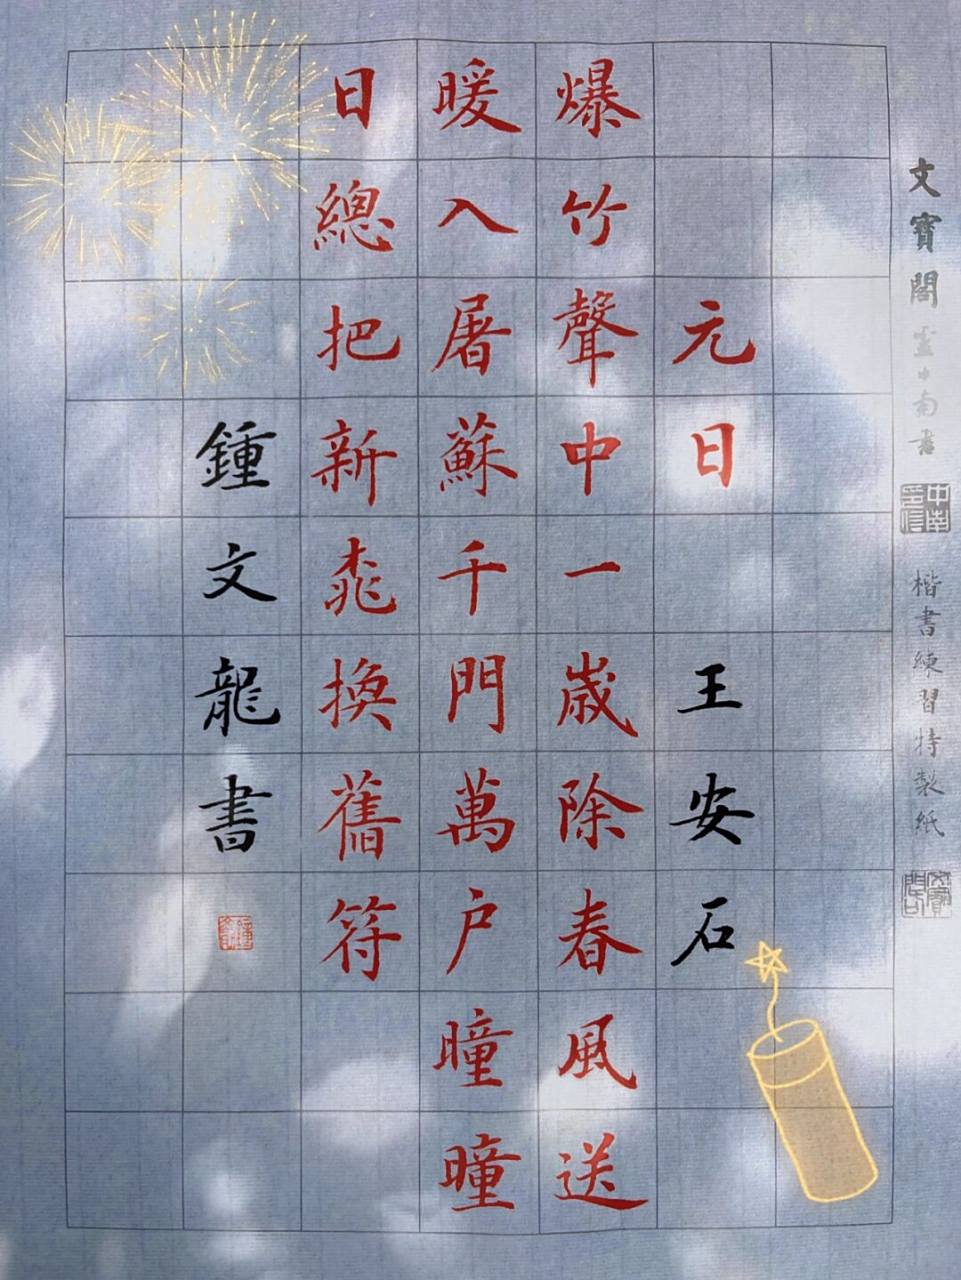 文寶閣 盧中南書
中南印信
楷書練習特製紙
元日 王安石
爆竹聲中一歳除春風送
暖入屠蘇千門萬户曈曈
日總把新桃換舊符
鍾文龍書